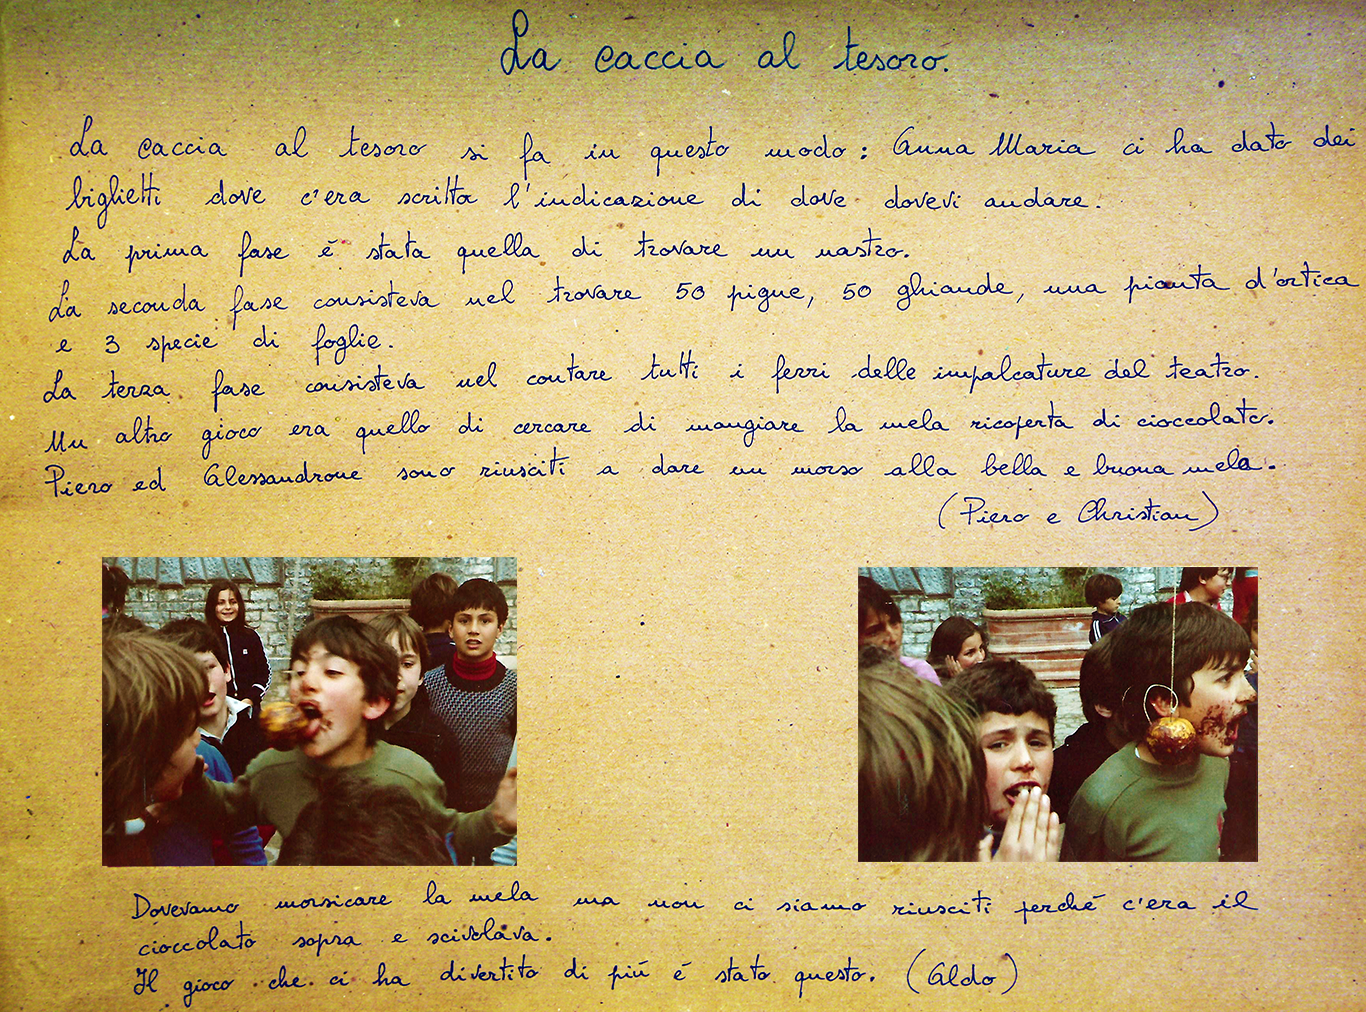 La caccia al tesoro.
La caccia al tesoro si fa in questo modo: Anna Maria ci ha dato dei
biglietti dove c'era scritta l'indicazione di dove dovevi andare.
La prima fase é stata quella di trovare un nastro.
La seconda fase consisteva nel trovare 50 pigne, 50 ghiande, una pianta d'ortica
e 3 specie di foglie.
La terza fase consisteva nel contare tutti i ferri delle impalcature del teatro.
Un altro gioco era quello di cercare di mangiare la mela ricoperta di cioccolato.
Piero ed Alessandrone sono riusciti a dare un morso alla bella e buona mela.
(Piero e Christian)
Dovevamo morsicare la mela ma non ci siamo riusciti perché c'era il
cioccolato sopra e scivolava.
Il gioco che ci ha divertito di piú é stato questo. (Aldo)